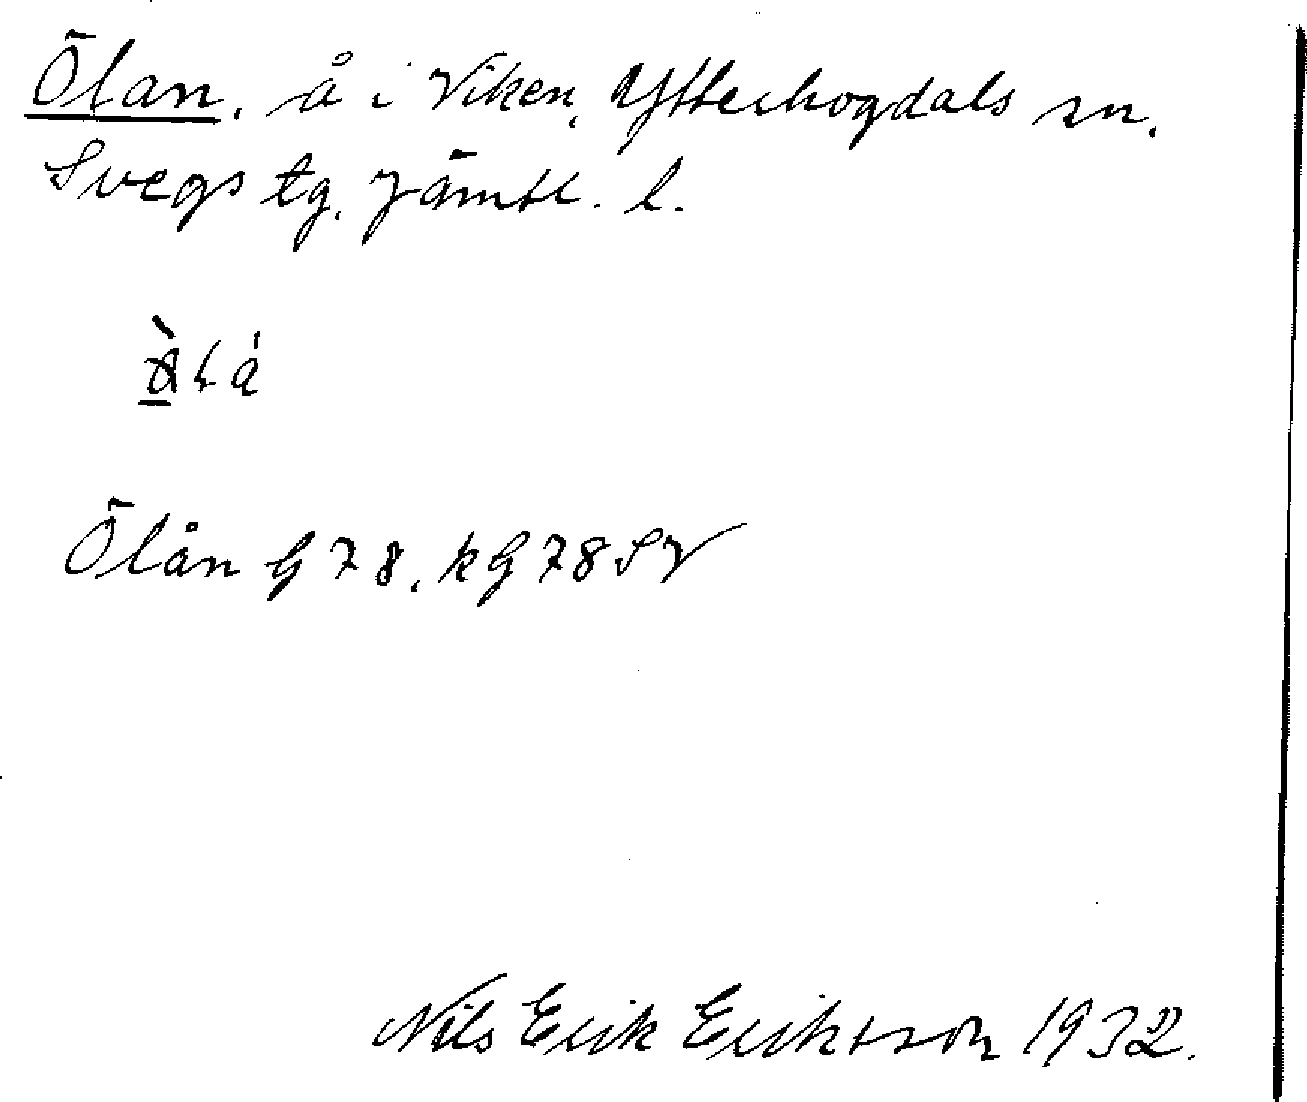 Ölan. å i Viken, Ytterhogdals sn.
Svegs tg. Jämtl. l.
Ölån G 78, kG 78 SV
Nils Erik Eriksson 1932.